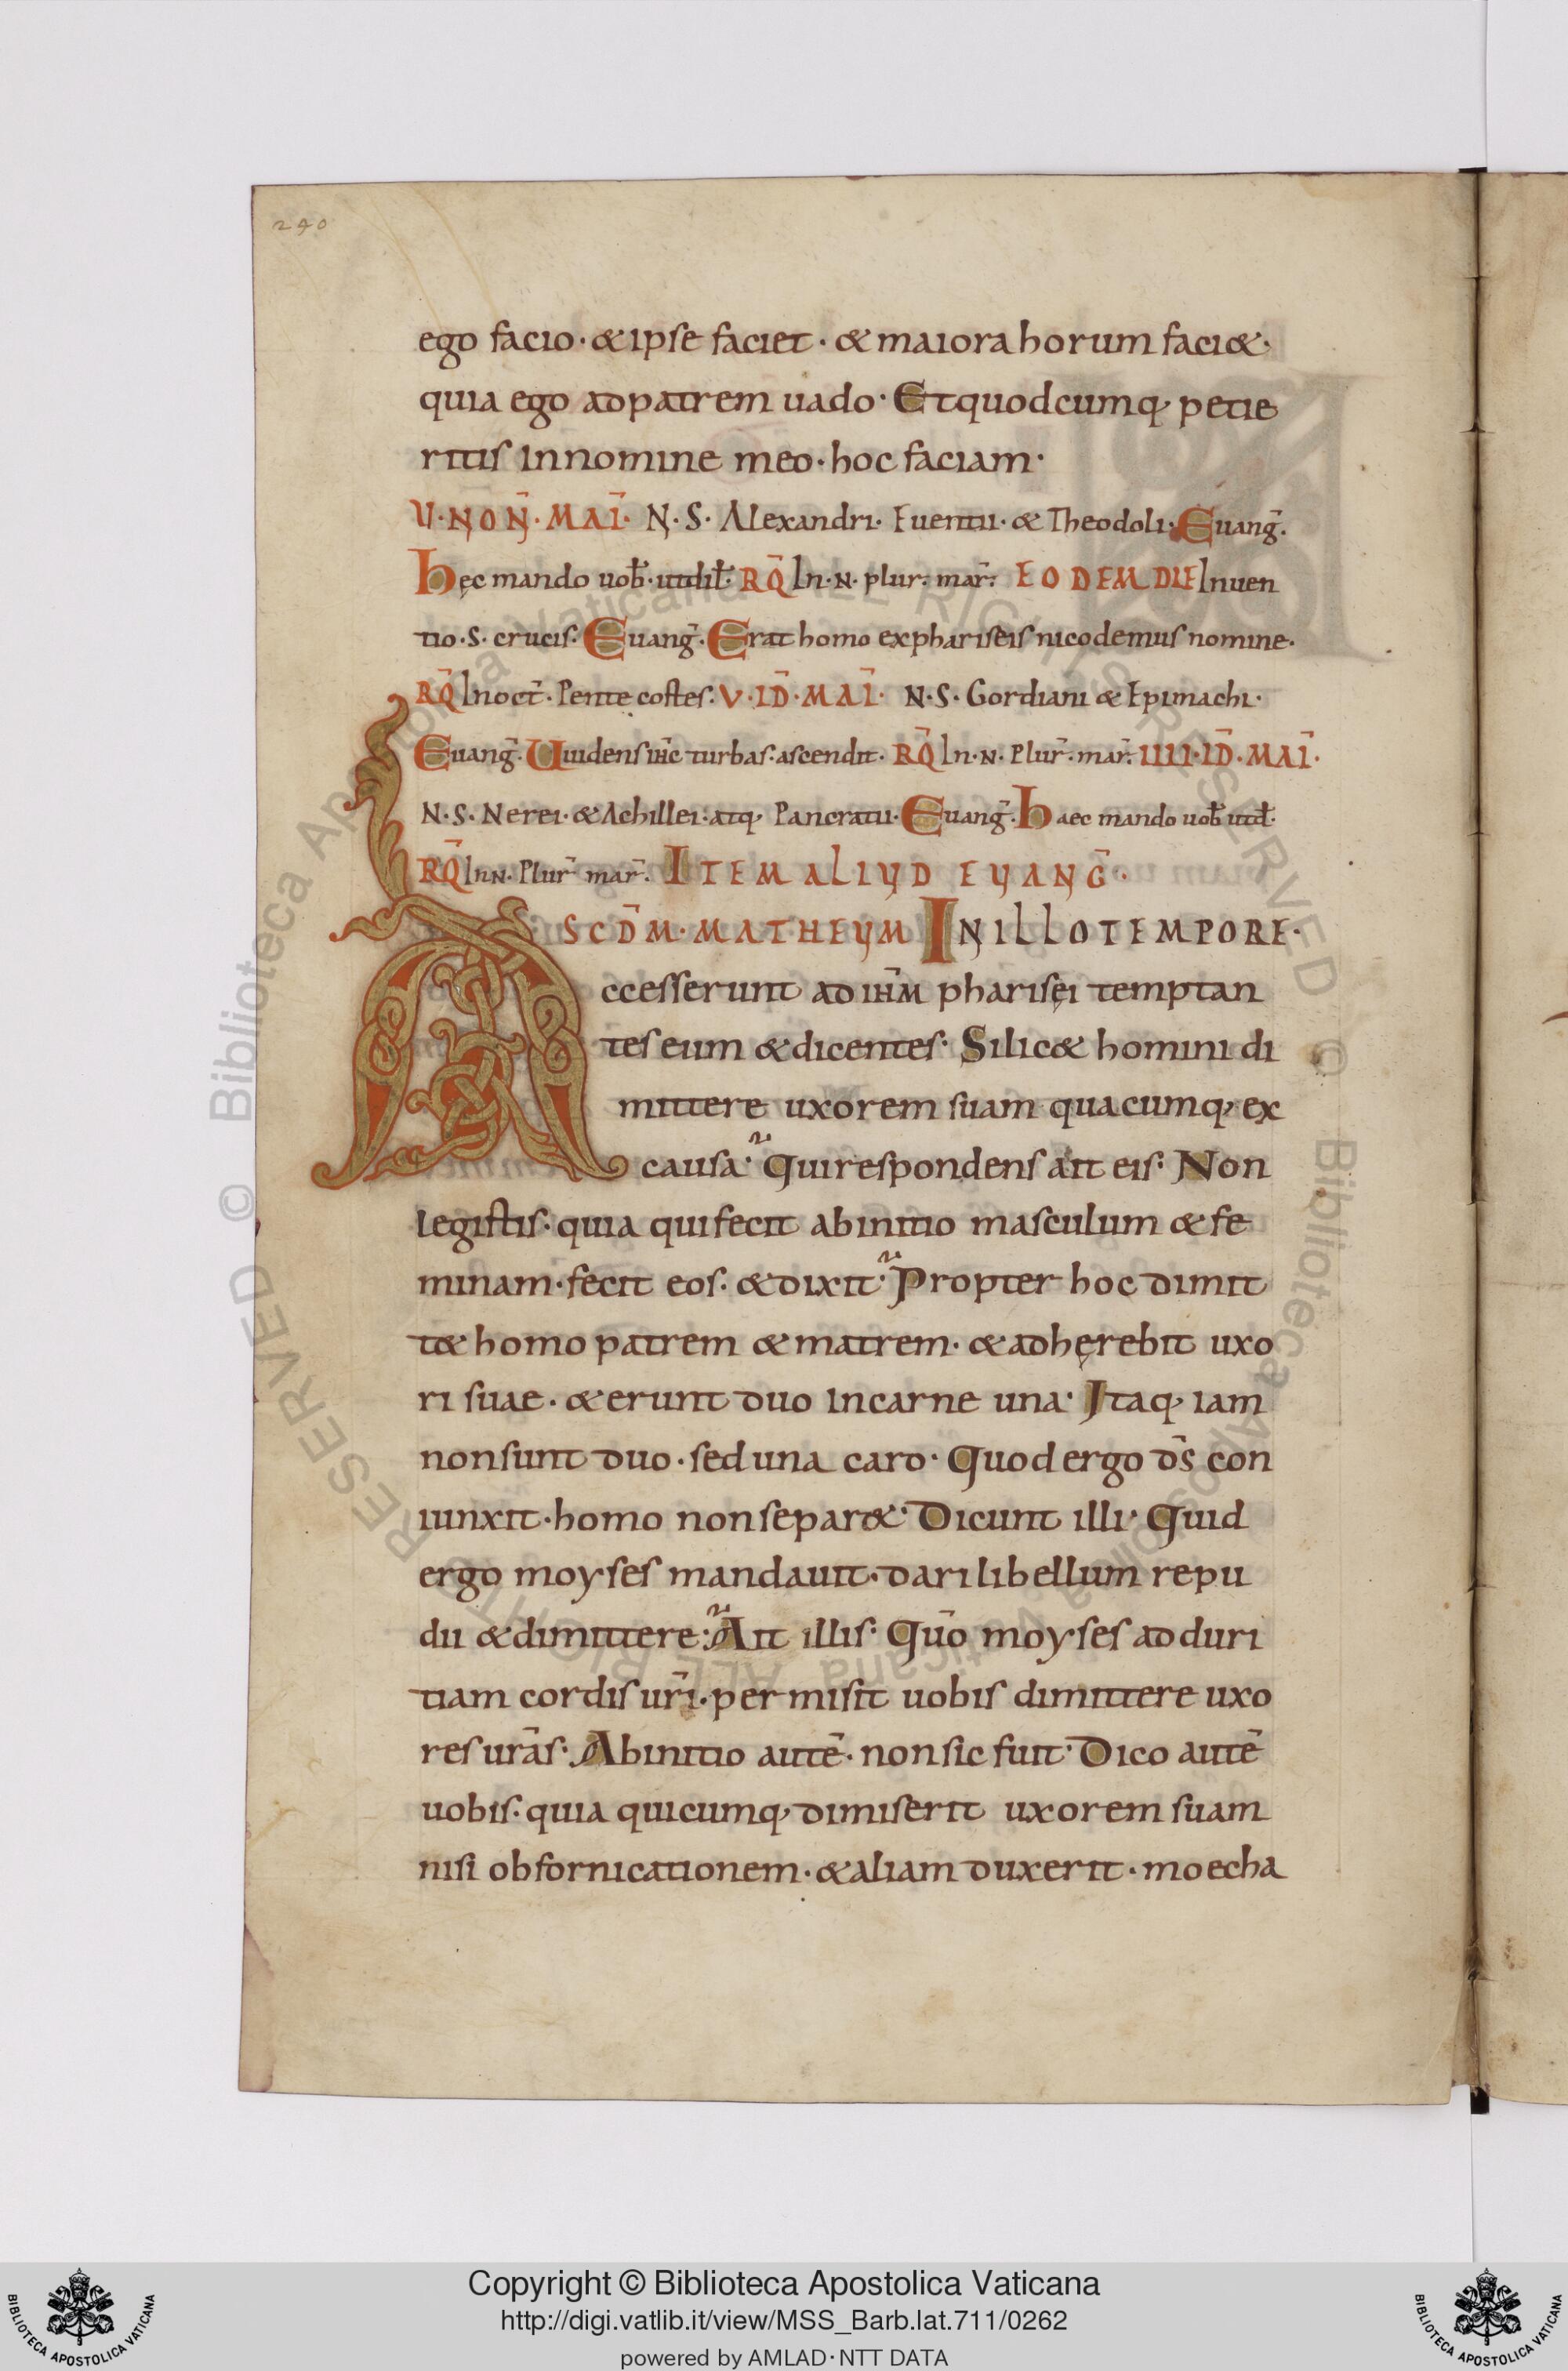 240
ego facio· & ipse faciet· & maiora horum faci&·
quia ego ad patrem uado· Et quodcumq; petie
ritis In nomine meo· hoc faciam·
U·NOÑ·MAĪ· N·S· Alexandri· Euentii· & Theodoli· Euang̃·
Hęc mando uob̃· ut dil̃· RQ̃ In·N· plur̃· mar̃· EODEM DIE Inuen
tio·S· crucis· Euang̃· Erat homo ex phariseis nicodemus nomine·
RQ̃ In oct̃· Pentecostes· V·ID̃·MAĪ· N·S· Gordiani & Epimachi·
Euang̃· Uuidens ih̃c turbas· ascendit· RQ̃ In·N· Plur̃· mar̃· IIII·ID̃·MAĪ·
N·S· Nerei· & Achillei· atq; Pancratii· Euang̃· Haec mando uob̃ ut d̃·
RQ̃ In N· Plur̃ mar̃· ITEM ALIUD EUANG̃·
SCD̃M·MATHEUM IN ILLO TEMPORE·
Accesserunt ad ih̃m pharisęi temptan
tes eum & dicentes· Si lic& homini di
mittere uxorem suam quacumq; ex
causa· Qui respondens ait eis· Non
legistis· quia qui fecit ab initio masculum & fe
minam· fecit eos· & dixit· Propter hoc dimit
t& homo patrem & matrem· & adhęrebit uxo
ri suae· & erunt duo In carne una· Itaq; iam
non sunt duo· sed una caro· Quod ergo d̃s con
iunxit· homo non separ&· Dicunt illi· Quid
ergo moyses mandauit· dari libellum repu
dii & dimittere· Ait illis· Qũo moyses ad duri
tiam cordis ur̃i· permisit uobis dimittere uxo
res ur̃as· Ab initio autẽ· non sic fuit· Dico autẽ
uobis· quia quicumq; dimiserit uxorem suam
nisi ob fornicationem· & aliam duxerit· moecha
Copyright © Biblioteca Apostolica Vaticana
http://digi.vatlib.it/view/MSS_Barb.lat.711/0262
powered by AMLAD·NTT DATA
BIBLIOTECA APOSTOLICA VATICANA
BIBLIOTECA APOSTOLICA VATICANA
© Biblioteca Apostolica Vaticana ALL RIGHTS RESERVED
© Biblioteca Apostolica Vaticana ALL RIGHTS RESERVED